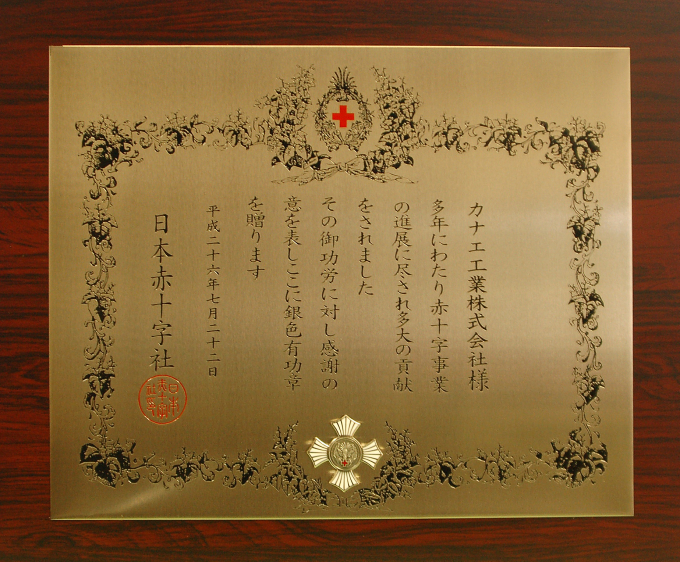 カナエ工業株式会社様
多年にわたり赤十字事業
の進展に尽され多大の貢献
をされました
その御功労に対し感謝の
意を表しここに銀色有功章
を贈ります
平成二十六年七月二十二日
日本赤十字社